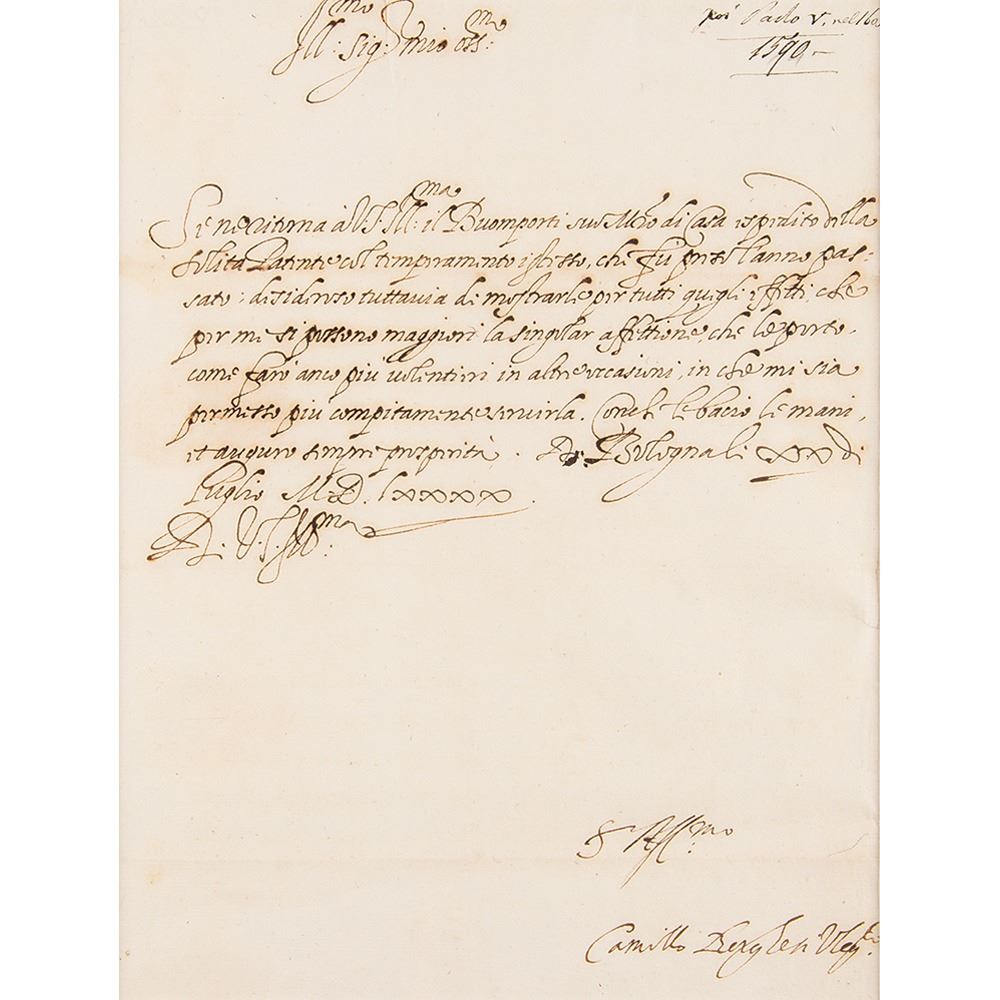 poi Paolo V. nel 160
1590.
Ill:mo sig: mio oss:mo
Se ne ritorna à V.S. Ill:ma il Buomporti suo M.ro di Casa espedito della
solita Patente col temperamento istesso, che fù preso l'anno pas-
sato; desideroso tuttavia di mostrarle per tutti quegli effetti, che
per me si possono maggiori la singular affettione, che le porto.
come farò anco più volentieri in altre occasioni, in che mi sia
permesso più compitamente servirla. Con che le bacio le mani,
et auguro sempre prosperità. Di Bologna li xxx di
Luglio M.D.lxxxx.
D. V.S. Ill:ma
Aff:mo
Camillo Borghesi